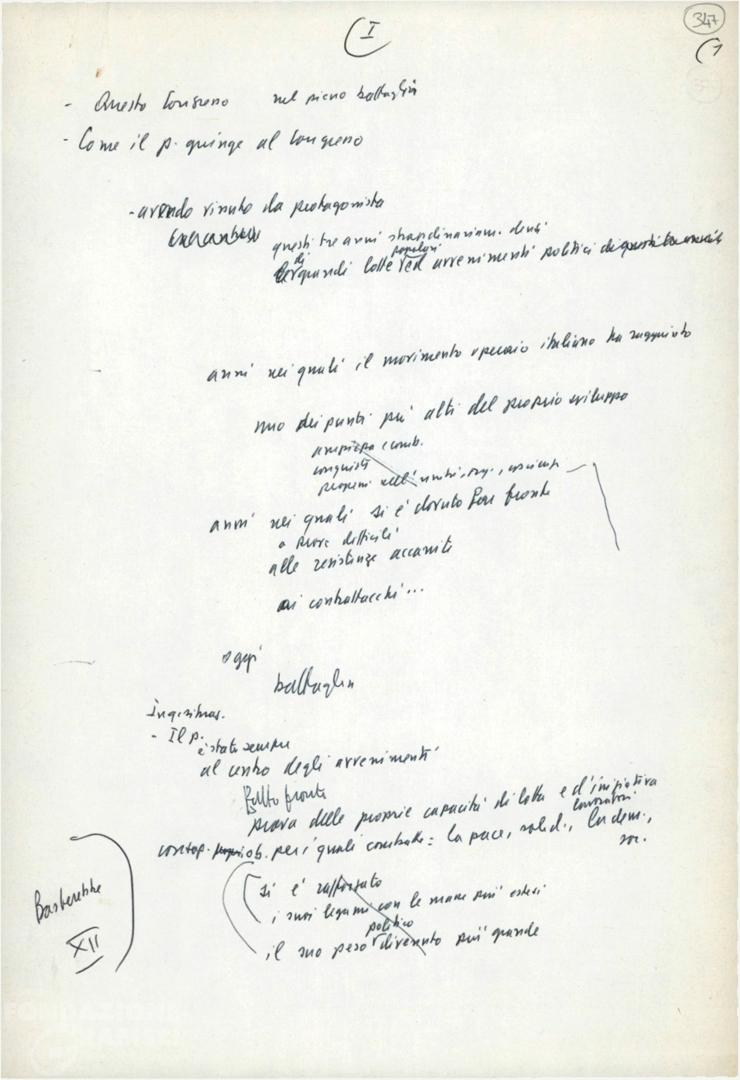 I
347
(1
- Questo Congresso nel pieno battaglia
- Come il p. giunge al Congresso
- avendo vissuto da protagonista
questi tre anni straordinariam. densi
di popolari
grandi lotte ed avvenimenti politici di questi tre anni
anni nei quali il movimento operaio italiano ha raggiunto
uno dei punti più alti del proprio sviluppo
ampiezza comb.
conquiste
progressi nell'unità, org., coscienza
anni nei quali si è dovuto far fronte
a prove difficili
alle resistenze accanite
ai contrattacchi...
oggi
battaglia
- Il p.
è stato sempre
al centro degli avvenimenti
fatto fronte
prova delle proprie capacità di lotta e d'iniziativa
lavoratori
ob. per i quali combatte: la pace, solid., la dem.,
soc.
si è rafforzato
i suoi legami con le masse più estesi
politico
il suo peso divenuto più grande
Basterebbe
XII
FONDAZIONE
GRAMSCI